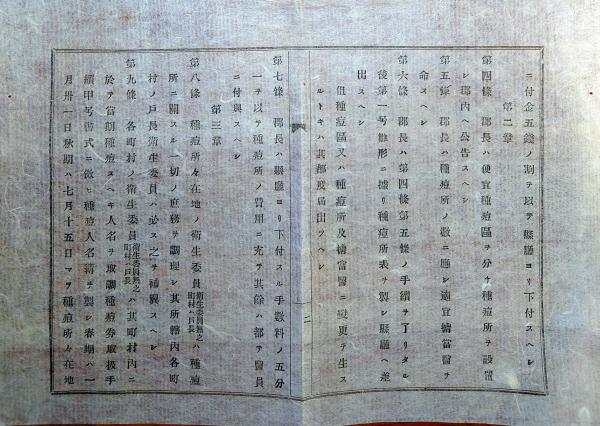 ニ付金五錢ノ割ヲ以テ縣廳ヨリ下付スヘシ
第二章
第四條 郡長ハ便宜種痘區ヲ分チ種痘所ヲ設置
シ郡内ヘ公告スヘシ
第五條 郡長ハ種痘所ノ數ニ應シ適宜擔當醫ヲ
命スヘシ
第六條 郡長ハ第四條第五條ノ手續ヲ了リタル
後第一号雛形ニ據リ種痘所表ヲ製シ縣廳ヘ差
出スヘシ
但種痘區又ハ種痘所及擔當醫ニ變更ヲ生ス
ルトキハ其都度届出ツヘシ
二
第七條 郡長ハ縣廳ヨリ下付スル手數料ノ五分
一ヲ以テ種痘所ノ費用ニ充テ其餘ハ都テ醫員
ニ付與スヘシ
第三章
第八條 種痘所々在地ノ衛生委員衛生委員無之町村ハ戸長ハ種痘
所ニ關スル一切ノ庶務ヲ調理シ其所轄内各町
村ノ戸長衛生委員ハ必ス之ヲ補翼スヘシ
第九條 各町村ノ衛生委員衛生委員無之町村ハ戸長ハ其町村内ニ
於テ當期種痘スヘキ人名ヲ取調種痘券取扱手
續甲号書式ニ倣ヒ種痘人名簿ヲ製シ春期ハ一
月卅一日秋期ハ七月十五日マテ種痘所々在地